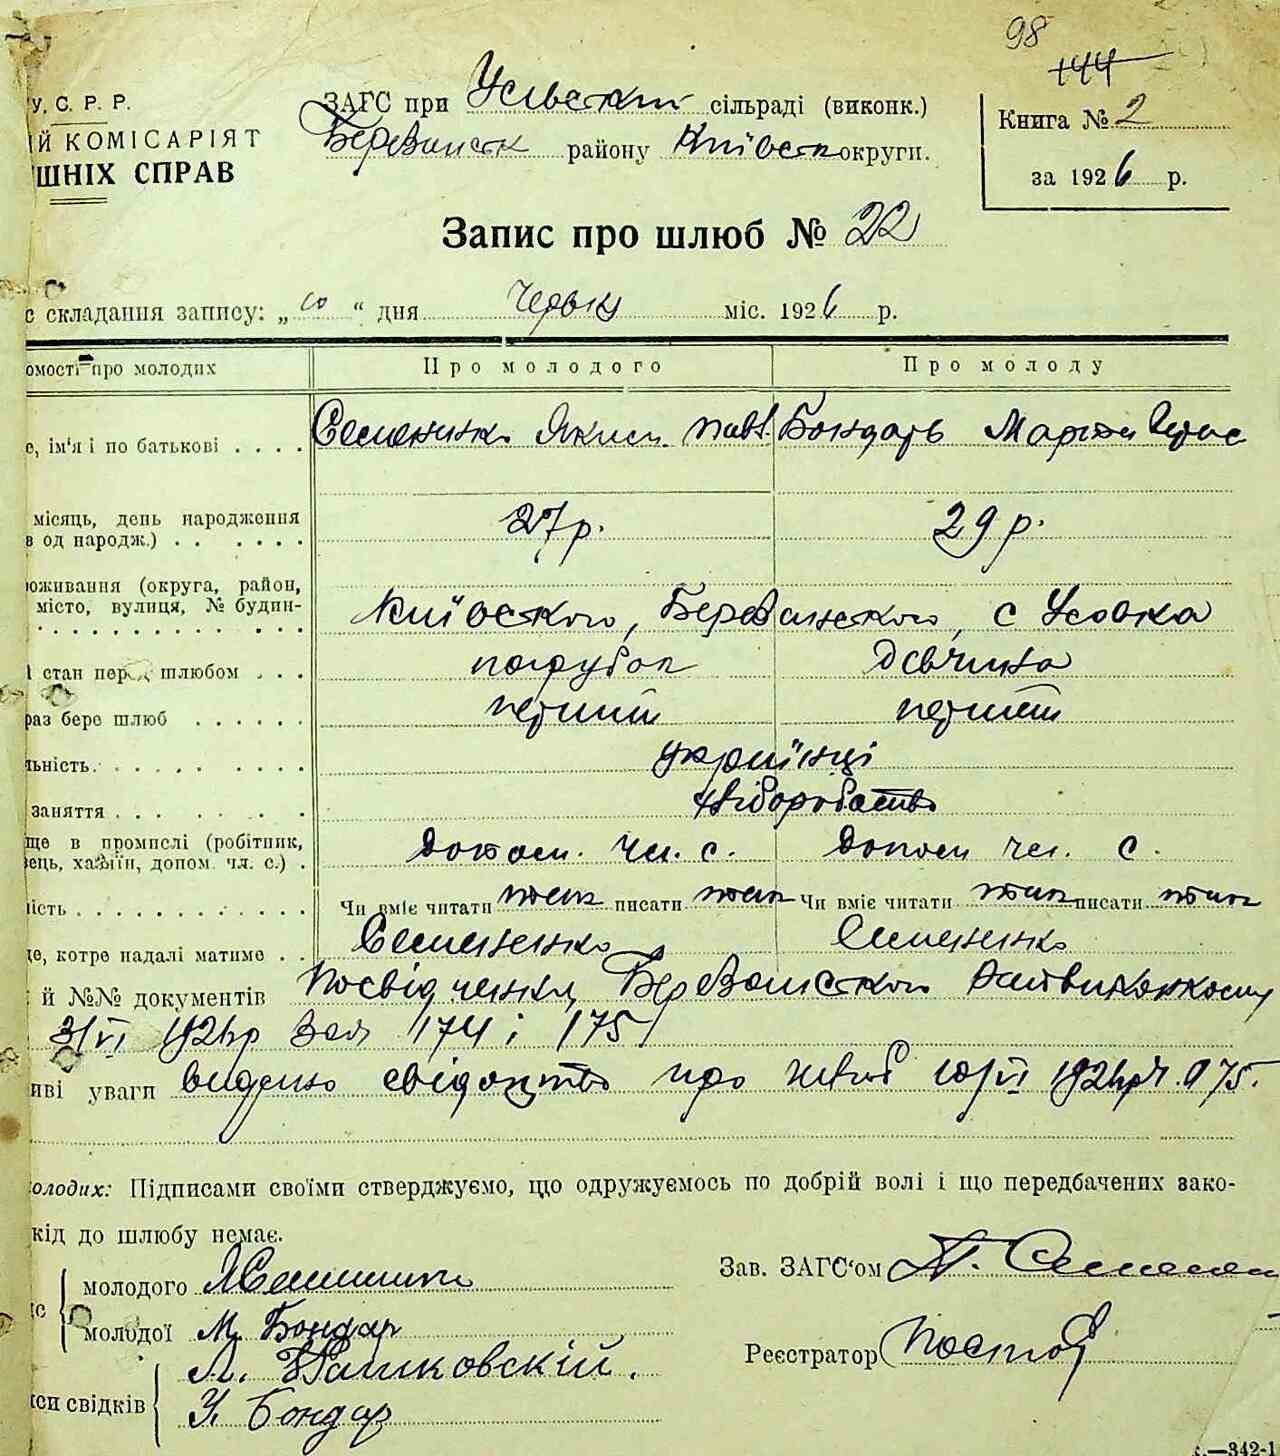 98
144
У. С. Р. Р.
Й КОМІСАРІЯТ
ШНІХ СПРАВ
ЗАГС при Усівській сільраді (виконк.)
Березанськ району Київськ округи.
Книга № 2
за 1926 р.
Запис про шлюб № 22
с складання запису: „10“ дня червня міс. 1926 р.
омості про молодих Про молодого Про молоду
е, ім'я і по батькові Семененко Яким Павл. Бондарь Марта
місяць, день народження
в од народж.) 27 р. 29 р.
оживання (округа, район,
місто, вулиця, № будин-
Київського, Березанського, с Усовка
стан перед шлюбом парубок дівчина
раз бере шлюб перший перший
льність українці
заняття хліборобство
ще в промислі (робітник,
ець, хазяїн, допом. чл. с.) допом. чл. с. допом чл. с.
ність Чи вміє читати так писати так Чи вміє читати так писати так
це, котре надалі матиме Семененко Семененко
й №№ документів Посвідчення Березанського Райвиконкому
3/VI 1926р за № 174 і 175
иві уваги видано свідоцтво про шлюб 10/VI 1926р № 175.
олодих: Підписами своїми стверджуємо, що одружуємось по добрій волі і що передбачених зако-
кід до шлюбу немає.
молодого Я Семененко
молодої М. Бондар
Зав. ЗАГС'ом
Реєстратор
си свідків
У. Бондар
—342-1